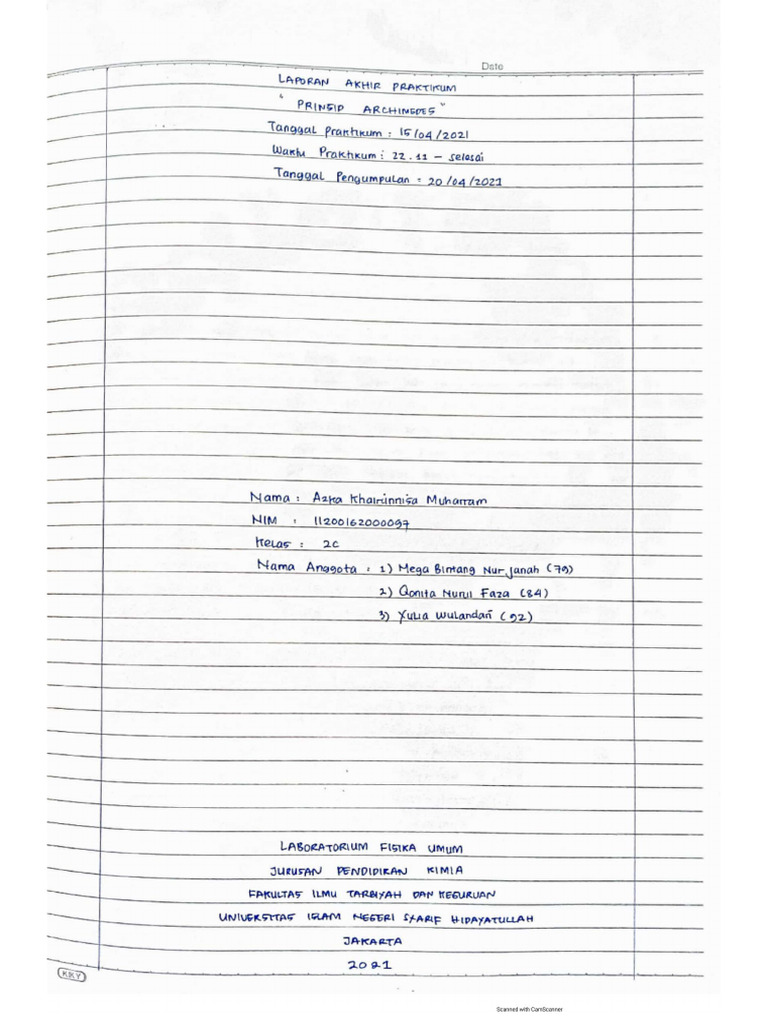 Date
LAPORAN AKHIR PRAKTIKUM
" PRINSIP ARCHIMEDES "
Tanggal Praktikum : 15/04/2021
Waktu Praktikum : 22.11 – selesai
Tanggal Pengumpulan : 20/04/2021
Nama : Azka Khairinnisa Muharram
NIM : 11200162000097
Kelas : 2C
Nama Anggota : 1) Mega Bintang Nur Janah (79)
2) Qonita Nurul Faza (84)
3) Yulia Wulandari (92)
LABORATORIUM FISIKA UMUM
JURUSAN PENDIDIKAN KIMIA
FAKULTAS ILMU TARBIYAH DAN KEGURUAN
UNIVERSITAS ISLAM NEGERI SYARIF HIDAYATULLAH
JAKARTA
2021
KKY
Scanned with CamScanner